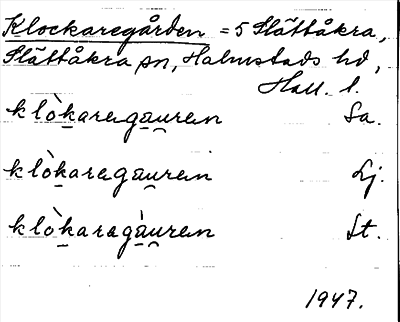 Klockaregården = 5 Slättåkra,
Slättåkra sn, Halmstads hd,
Hall. l.
klò̱karega̱u̯ren Sa.
klò̱karega̱u̯ren Lj.
klò̱karegà̱u̯ren St.
1947.